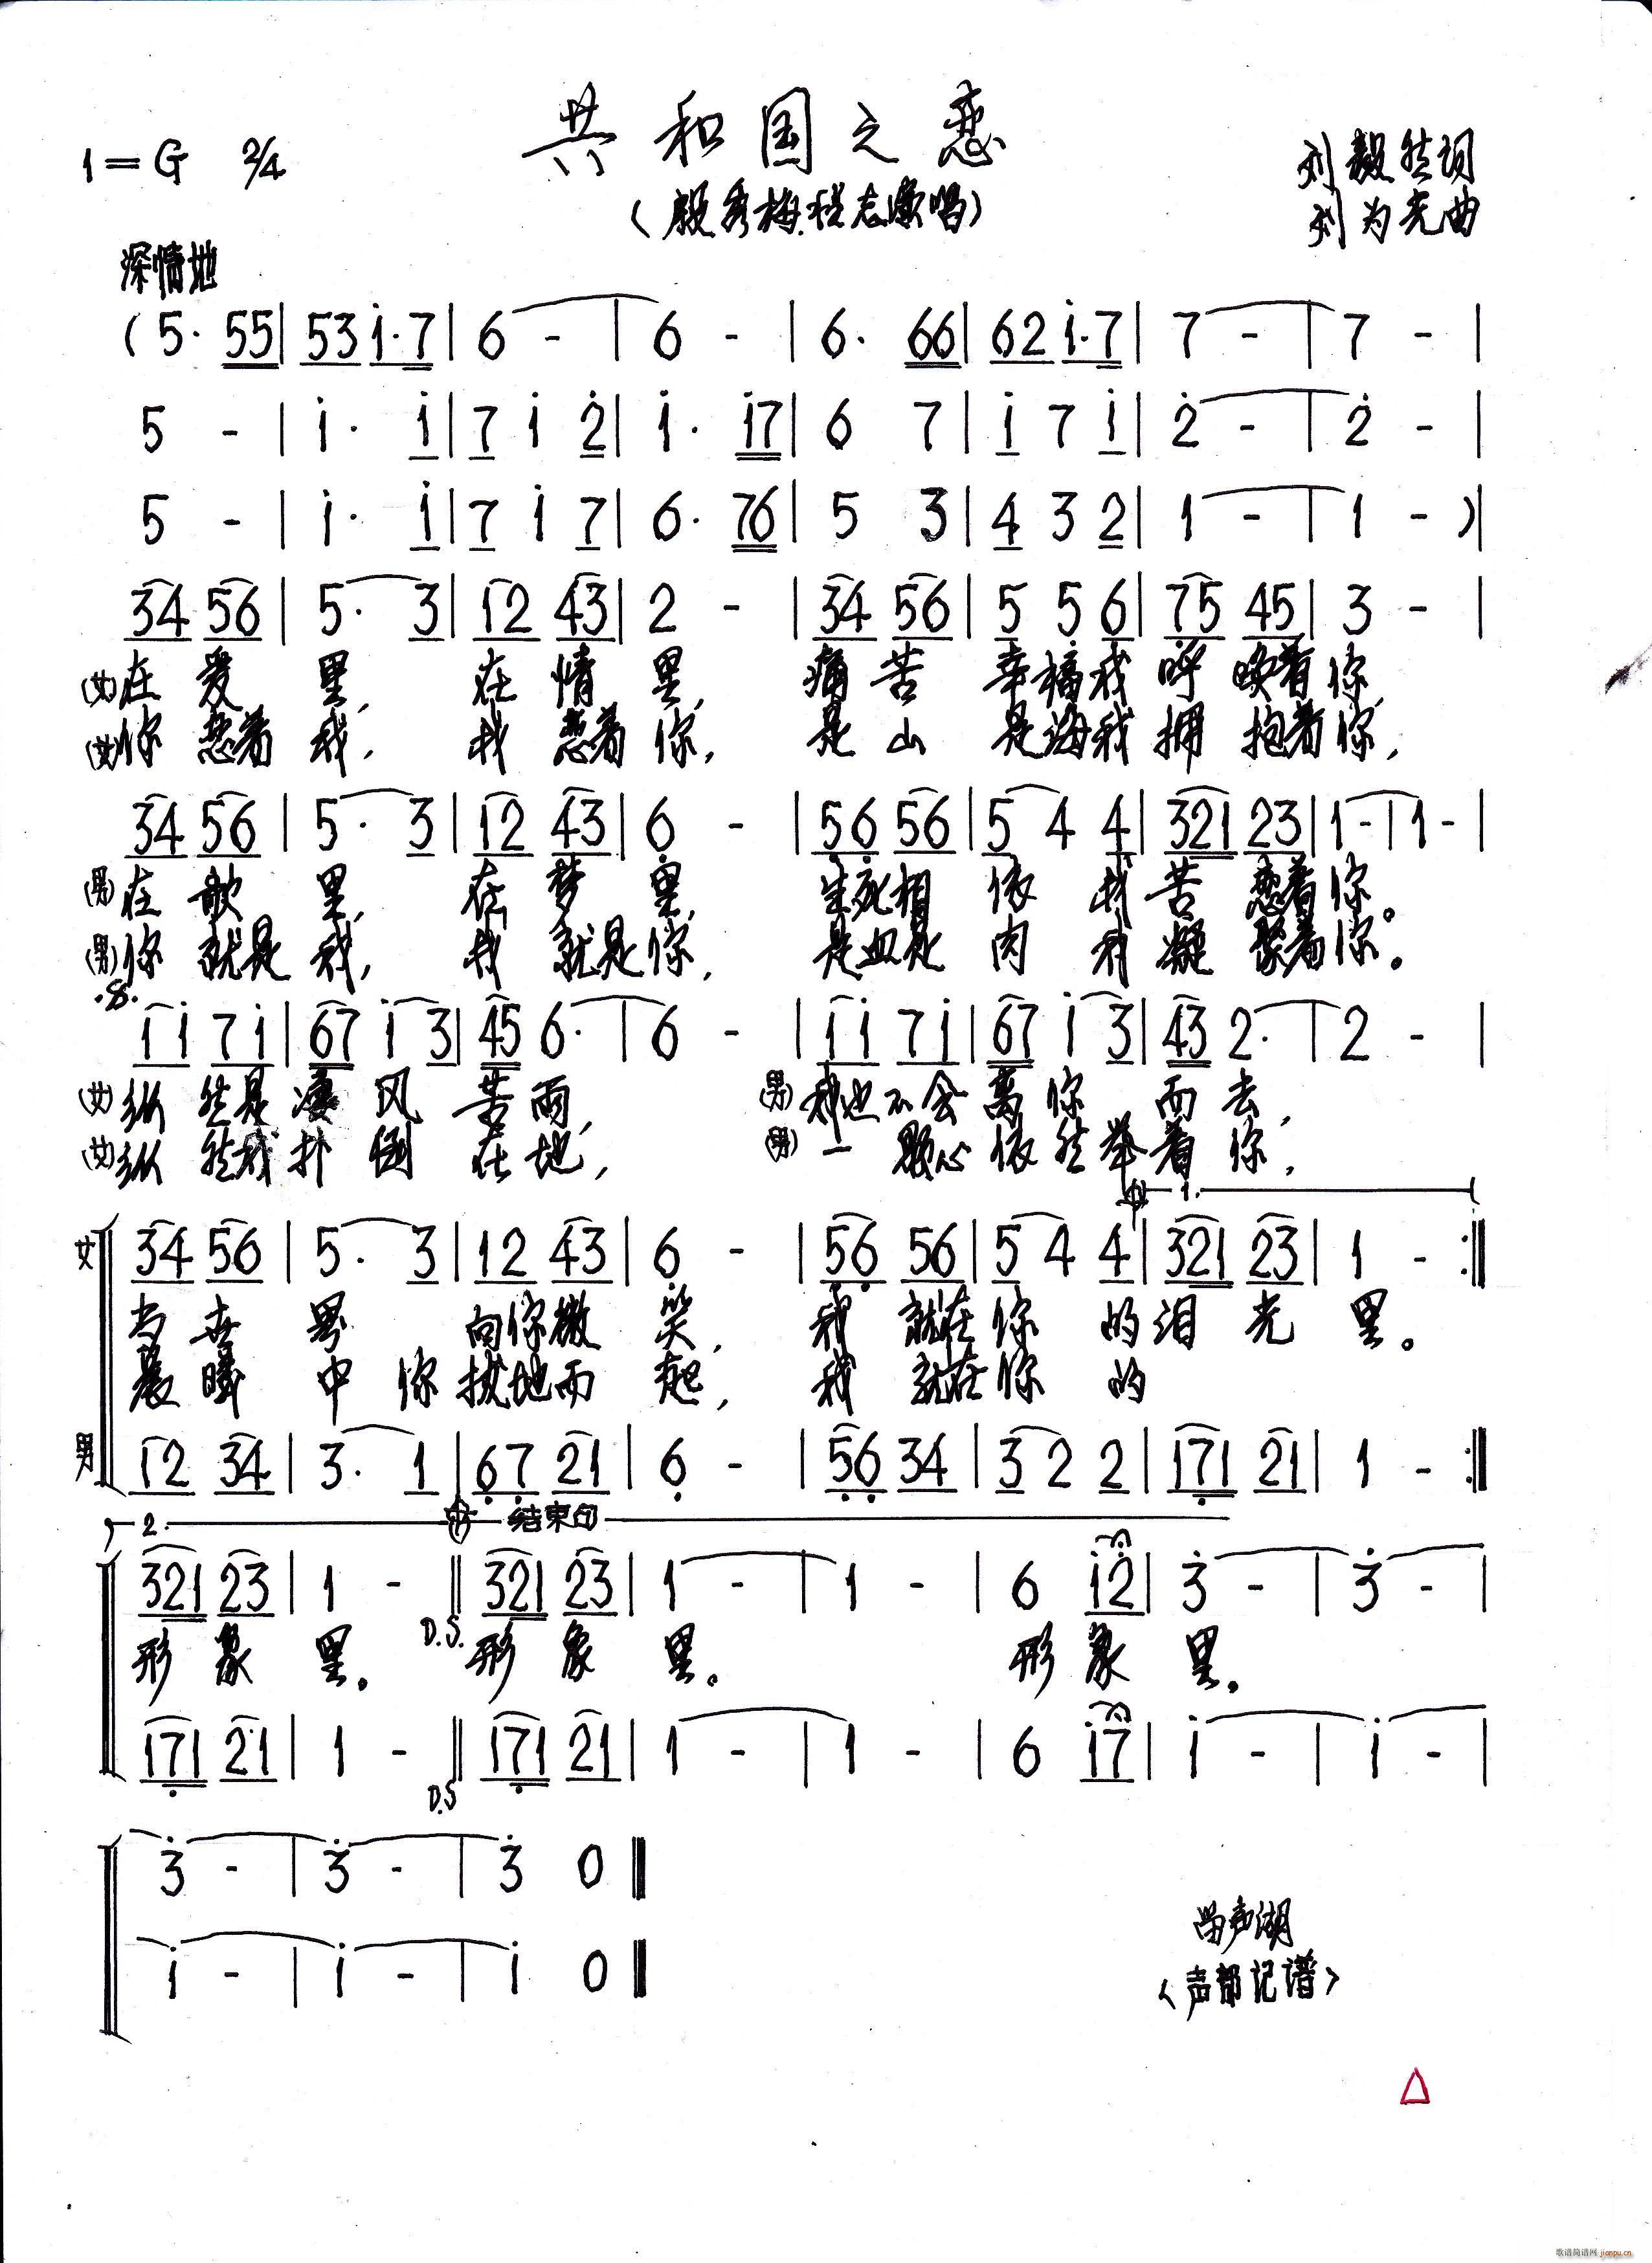 共和国之恋
1=G 2/4
(殷秀梅.程志演唱)
刘毅然词
刘为光曲
深情地
(5· 55 | 53 i·7 | 6 - | 6 - | 6· 66 | 62 i·7 | 7 - | 7 - |
5 - | i· i | 7 i 2̇ | i· i7 | 6 7 | i 7 i | 2̇ - | 2̇ - |
5 - | i· i | 7 i 7 | 6· 76 | 5 3 | 4 3 2 | 1 - | 1 - ) |
34 56 | 5· 3 | 12 43 | 2 - | 34 56 | 5 5 6 | 75 45 | 3 - |
(女)在爱里,在情里,痛苦幸福我呼唤着你,
(女)你恋着我,我恋着你,是山是海我拥抱着你,
34 56 | 5· 3 | 12 43 | 6̣ - | 56 56 | 5 4 4 | 321 23 | 1 - | 1 - |
(男)在歌里,在梦里,生死相依我苦恋着你。
(男)你就是我,我就是你,是血是肉我凝聚着你。
.S.
i i 7 i | 67 i 3 | 45 6· | 6 - | i i 7 i | 67 i 3 | 43 2· | 2 - |
(女)纵然是凄风苦雨,(男)我也不会离你而去,
(女)纵然我扑倒在地,(男)一颗心依然举着你,
1.
女 34 56 | 5· 3 | 12 43 | 6̣ - | 5̣6̣ 56 | 5 4 4 | 321 23 | 1 - :||
当世界向你微笑,我就在你的泪光里。
晨曦中你拔地而起,我就在你的
男 12 34 | 3· 1 | 6̣7̣ 21 | 6̣ - | 5̣6̣ 34 | 3 2 2 | 17̣1 21 | 1 - :||
2. 结束句
321 23 | 1 - || 321 23 | 1 - | 1 - | 6 i2̇ | 3̇ - | 3̇ - |
形象里。D.S.形象里。形象里。
17̣1 21 | 1 - || 17̣1 21 | 1 - | 1 - | 6 i7 | i - | i - |
D.S
3̇ - | 3̇ - | 3̇ 0 ||
i - | i - | i 0 ||
留声湖
<声部记谱>
歌谱简谱网 jianpu.cn